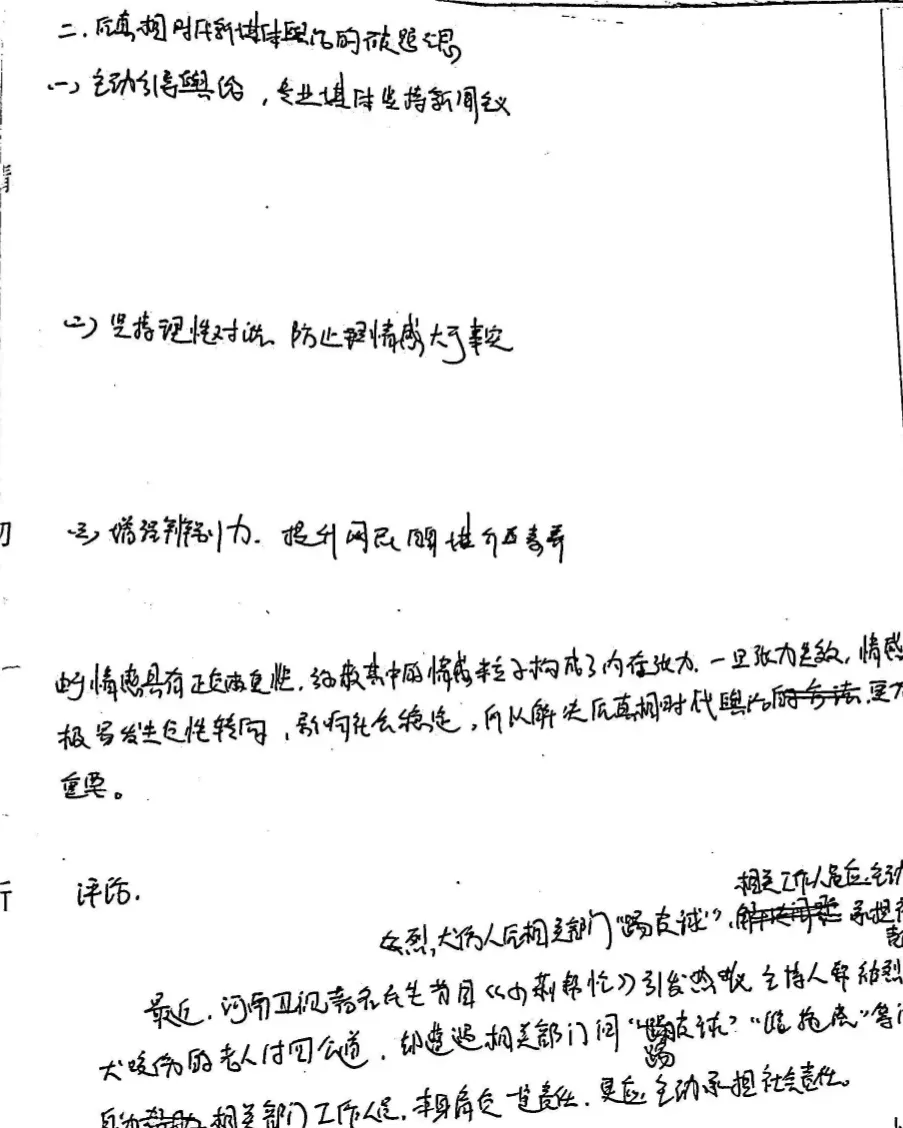 二.后真相时代新媒体舆论的破题之思
(一)主动引导舆论,专业媒体坚持新闻主义
(二)坚持理性对话、防止情感大于事实
(三)增强辨别力.提升网民媒介素养
的情感具有正负两面性,纷繁其中的情感粒子构成了内在张力.一旦张力失效,情感
极易发生负性转向,影响社会稳定,所以解决后真相时代舆论
重要。
评论.
相关工作人员应主动
女烈,犬伤人后相关部门"踢皮球",承担社
最近,河南卫视著名民生节目《小莉帮忙》引发热议 主持人帮被烈
犬咬伤的老人讨回公道,却遭遇相关部门间"踢皮球""推拖虑"等
相关部门工作人员,本身肩负一定责任.更应主动承担社会责任。